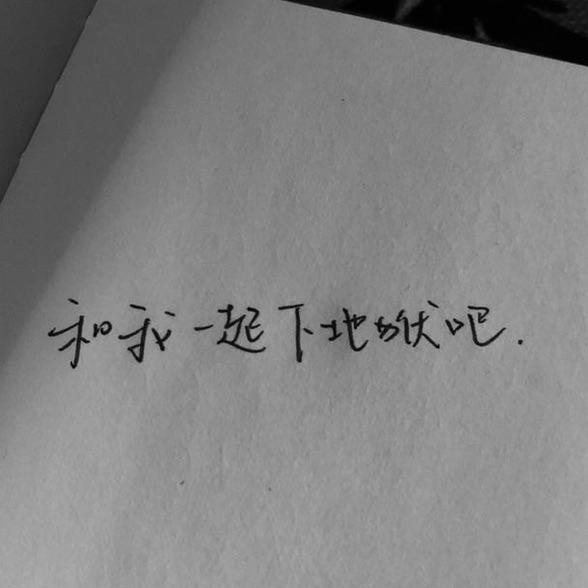 和我一起下地狱吧.